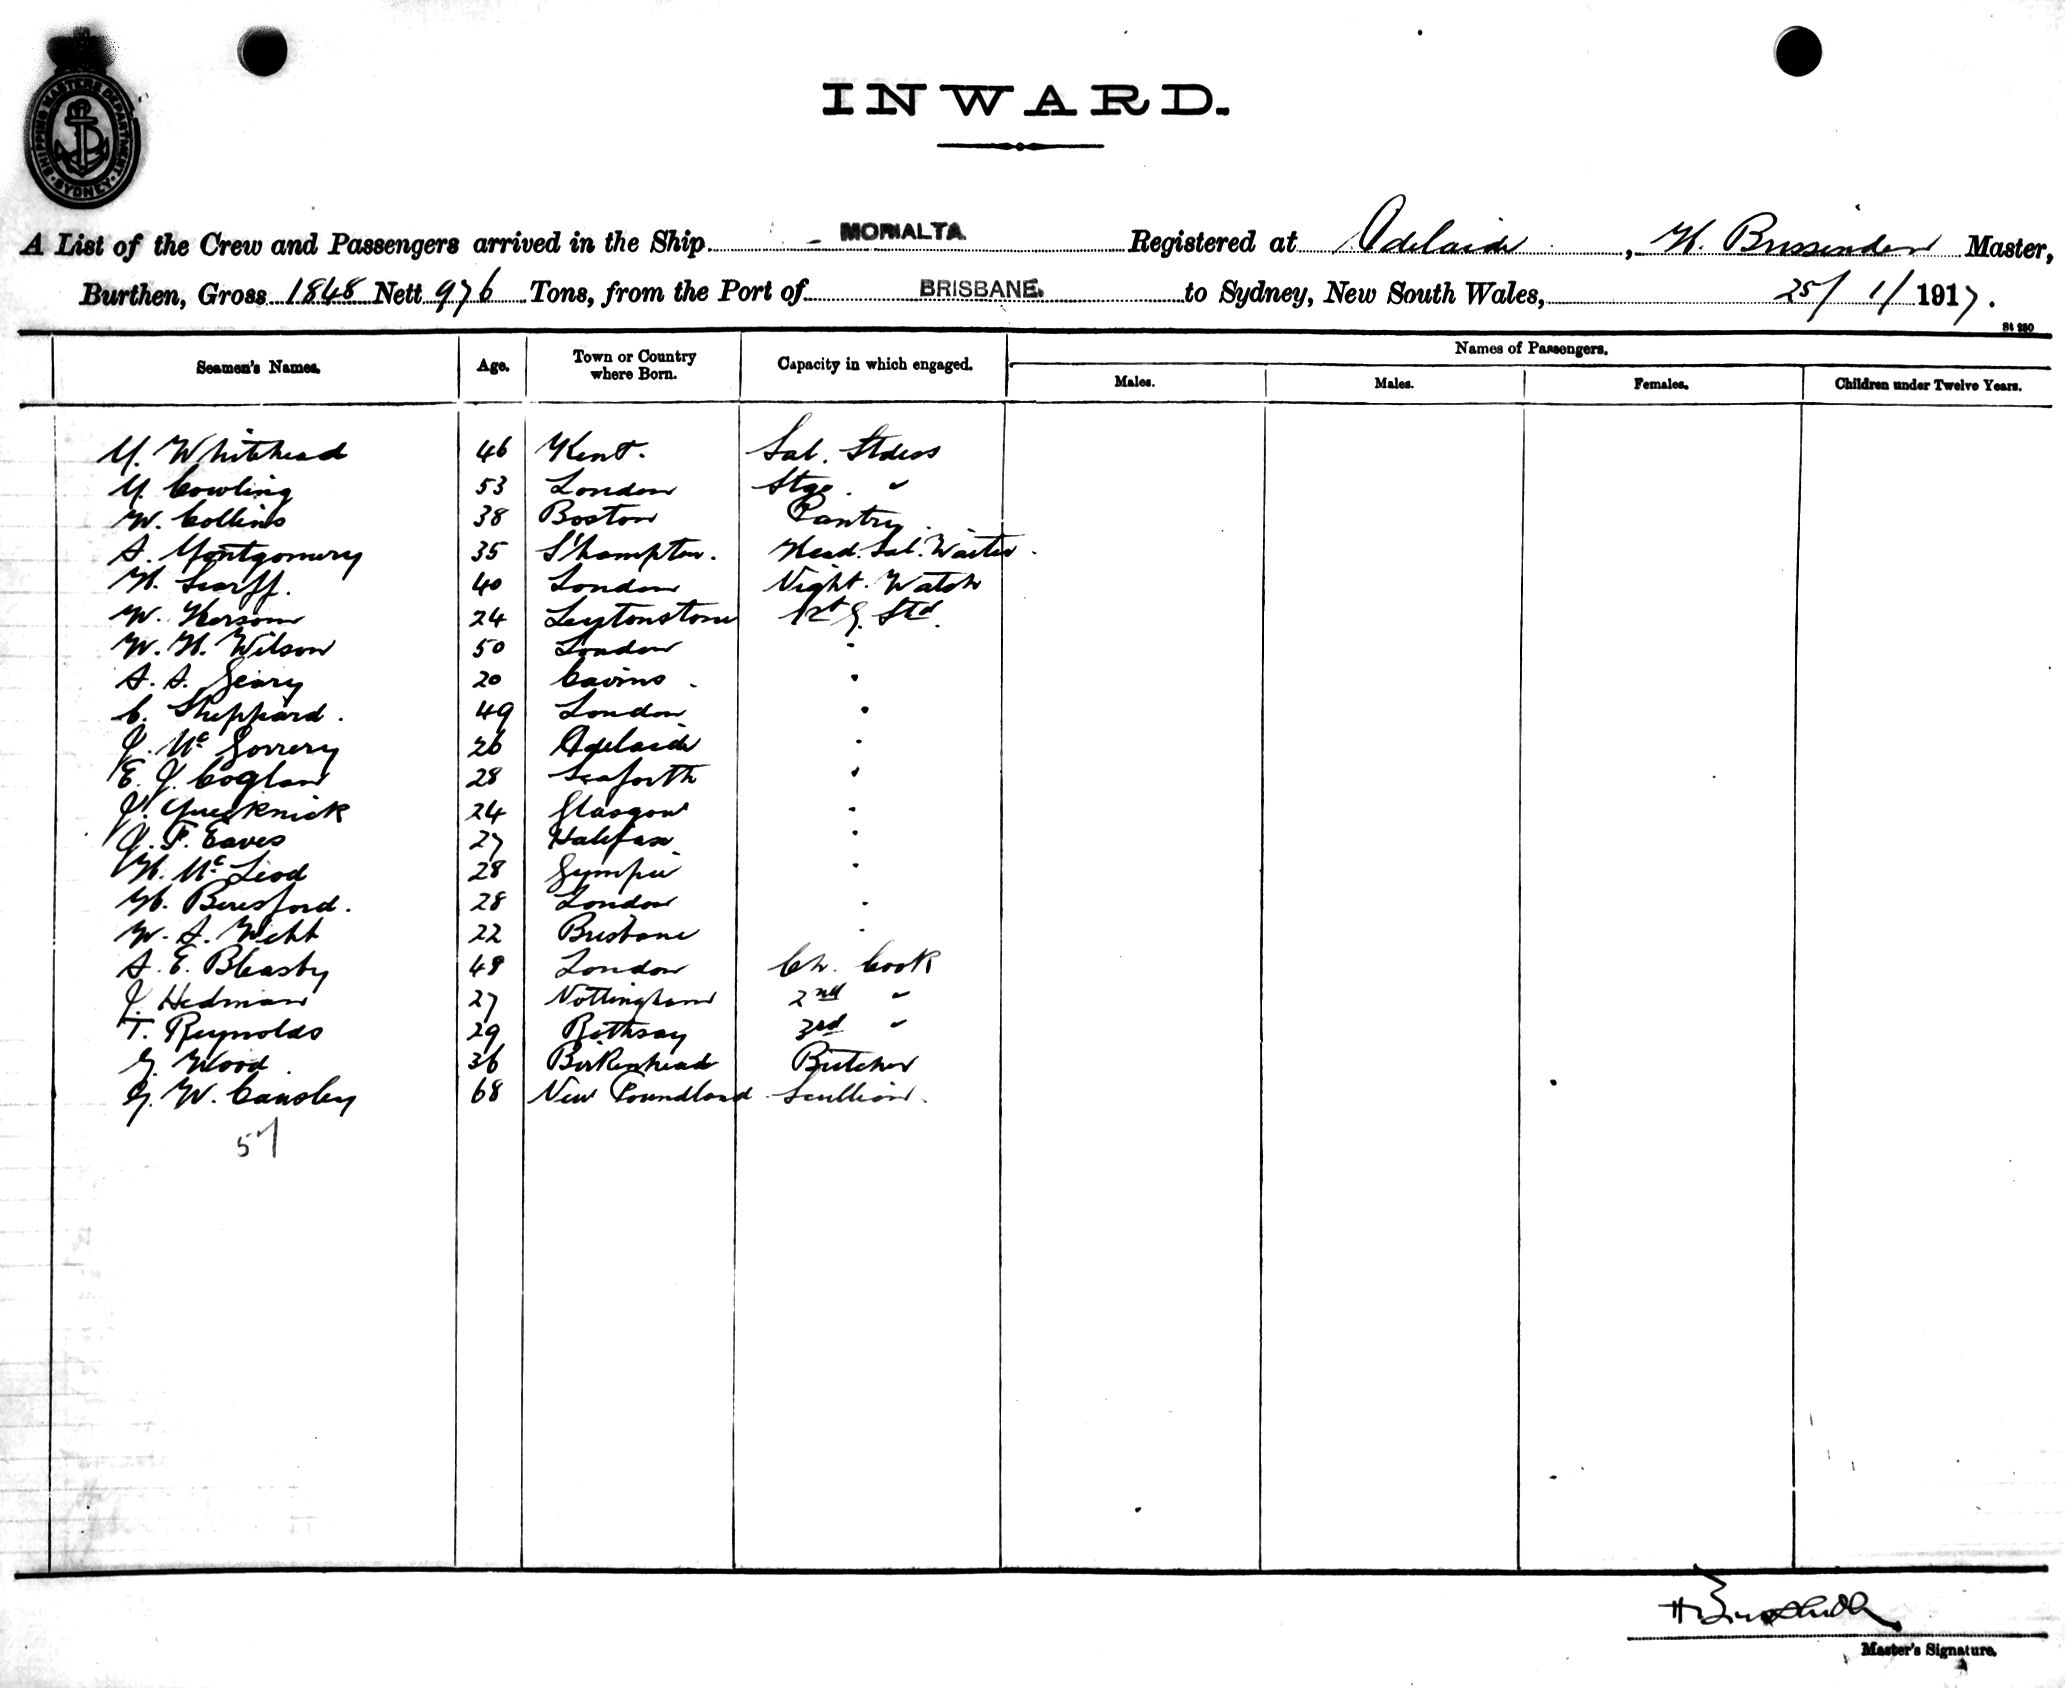 SHIPPING MASTERS DEPARTMENT · SYDNEY ·
INWARD.
A List of the Crew and Passengers arrived in the Ship MORIALTA Registered at Adelaide, H. Brissenden Master,
Burthen, Gross 1848 Nett 976 Tons, from the Port of BRISBANE. to Sydney, New South Wales, 25/1/1917.
St 280
Seamen's Names. Age. Town or Country where Born. Capacity in which engaged. Names of Passengers.
Males. Males. Females. Children under Twelve Years.
M. Whitehead 46 Kent. Sal. Stdess
M. Cowling 53 London Stge. "
W. Collins 38 Boston Pantry.
A. Montgomery 35 S'hampton. Head. Sal. Waiter.
H. Scarff. 40 London Night. Watch
W. Hersom 24 Leytonstone 1st G. Std.
W. H. Wilson 50 London "
A. A. Geary 20 Cairns. "
C. Sheppard. 49 London "
J. McGorrery 26 Adelaide "
E. J. Coglan 28 Seaforth "
J. 24 Glasgow "
J. F. Eaves 27 Halifax "
H. McLeod 28 Gympie "
H. Beresford. 28 London "
W. A. Webb 22 Brisbane "
A. E. Bleasby 48 London Ch. Cook
J. Hedman 27 Nottingham 2nd "
T. Reynolds 29 Rothsay 3rd "
G. Wood. 36 Birkenhead Butcher
G. W. Cansley 68 New Foundland Scullion.
57
Master's Signature.